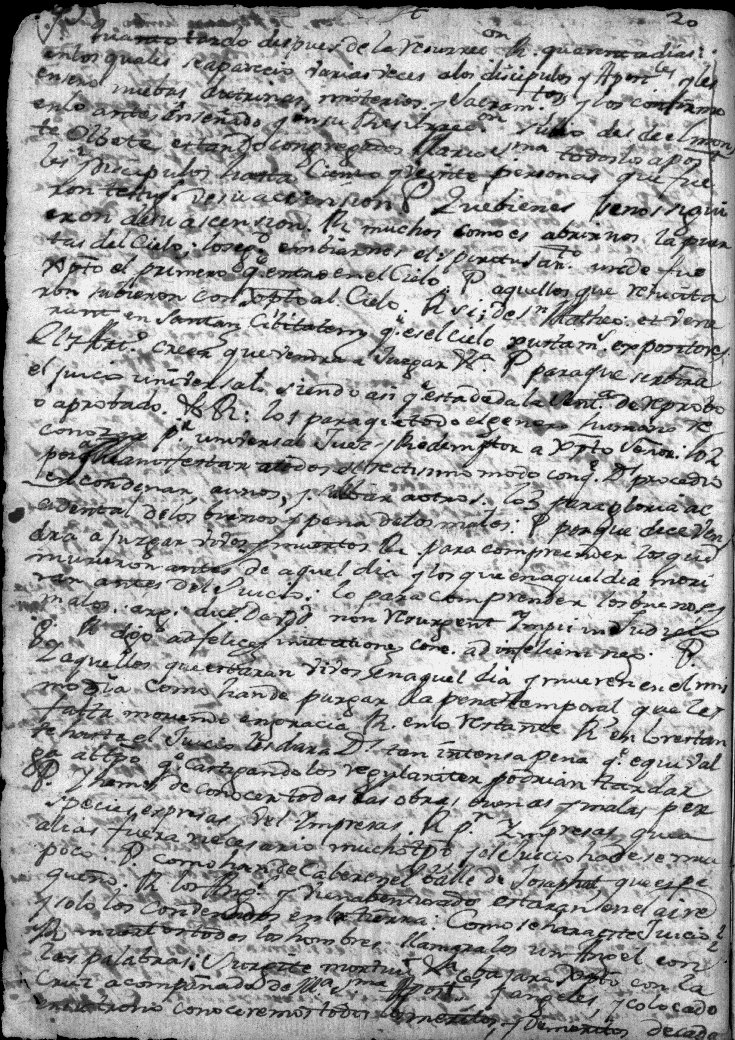 20
quanto tardo despues de la resurrecon R. quarenta dias:
en los quales se aparecio varias veces a los discipulos y Apostles y les
enseño muchas doctrinas, misterios, y Sacramtos y los confirmo
en lo antes enseñado y en su Resurreccon. subio desde el mon
te Olibete estando congregados Maria sma todos los apost
les Discipulos hasta Ciento y veinte personas que fue
ron testigs de su ascension P. Que bienes se nos sigui
eron de su ascension R. muchos como es abrirnos la puer
tas del Cielo; lo sego embiarnos el spiritu santo. unde fue
Xpto el primero qe entro en el Cielo P. aquellos que resucita
ron subieron con Xpto al Cielo: R. si; de Sn Matheo. et vene
runt in Santam Cibitatem qe es el Cielo
creer que vendra a Juzgar Ra. P. para que serbira
el juicio universal siendo asi qe esta dada la de reprobo
o aprobado. R: lo 1 para que todo el genero humano re
conozca pr universal Juez y Redemptor a Xpto Señor: lo 2
para manifestar a todos el rectisimo modo con qe Ds procedio
en condenar a unos, y salbar a otros: lo 3 para gloria ac
cidental de los buenos y pena de los malos: P. porque dice ven
dra a juzgar vivos y muertos R. para comprender los que
murieron antes de aquel dia y los que en aquel dia mori
ran antes del Juicio: lo para comprender los buenos y
malos: arg. dice David non resurgent Impii in Judicio
R. disto ad felicem inmutationem conc. ad infelicem neg. P.
aquellos que estaran vivos en aquel dia y mueren en el mis
mo dia como han de purgar la pena temporal que les
falta moviendo en gracia R. en lo restante R. en lo restan
te hasta el Juicio les dara Ds tan intensa pena qe equival
ga al tpo qe castigandolos regulariter podrian tardar
P. y hemos de conocer todas las obras buenas y malas per
species expresas vel Impresas. R. pr Impresas quia
alias fuera necesario mucho tpo y el Juicio ha de ser mui
poco. P. como han de caber en el valle de Josaphat, que es pe
queño. R. los Angs y vienabenturados estaran en el aire
y solo los condenados en la tierra: Como se hara este Juicio:
R. muertos todos los hombres: llamaralos un Angel con
las palabras; Surgite mortui. bajara Xpto con la
Cruz acompañado de Ma sma Apostoles y angeles, y colocado
en su trono conoceremos todos los meritos, y Demeritos de cada